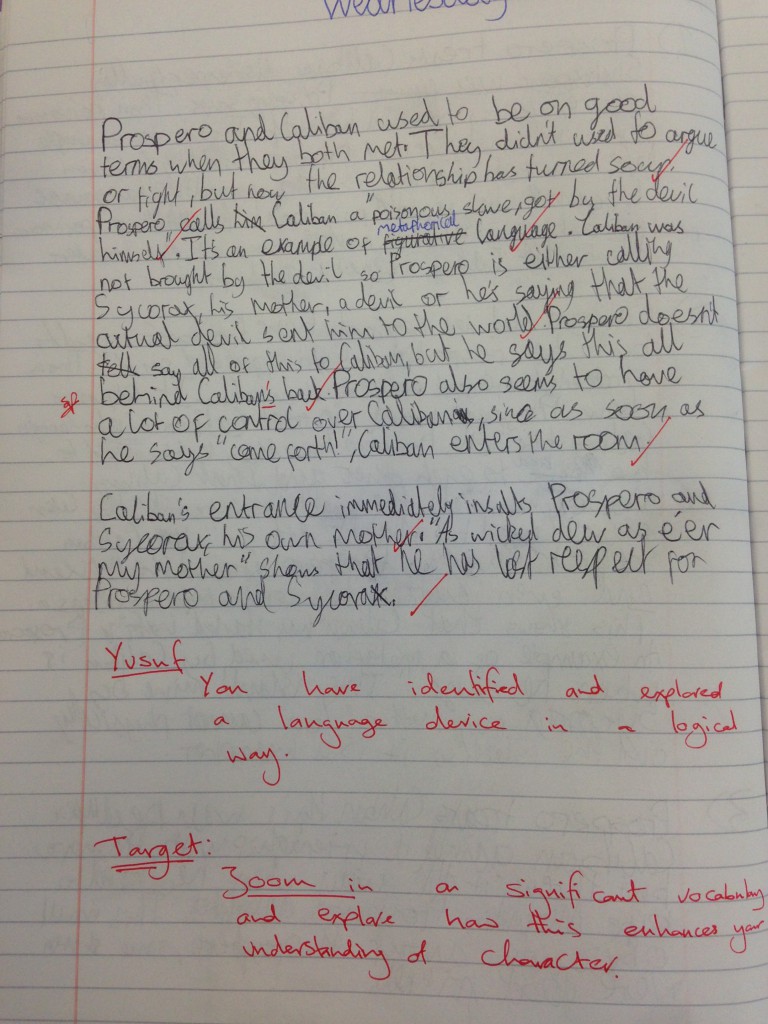 Wednesday
Prospero and Caliban used to be on good
terms when they both met. They didn't used to argue
or fight, but now the relationship has turned sour.
Prospero calls him Caliban a "poisonous slave, got by the devil
himself". It's an example of figurative metaphorical language. Caliban was
not brought by the devil so Prospero is either calling
Sycorax, his mother, a devil or he's saying that the
actual devil sent him to the world. Prospero doesn't
talk say all of this to Caliban, but he says this all
sp behind Caliban's back. Prospero also seems to have
a lot of control over Caliban, since as soon as
he says "come forth!", Caliban enters the room.
Caliban's entrance immediately insults Prospero and
Sycorax, his own mother. "As wicked dew as e'er
my mother" shows that he has lost respect for
Prospero and Sycorax.
Yusuf
You have identified and explored
a language device in a logical
way.
Target:
Zoom in on significant vocabulary
and explore how this enhances your
understanding of character.